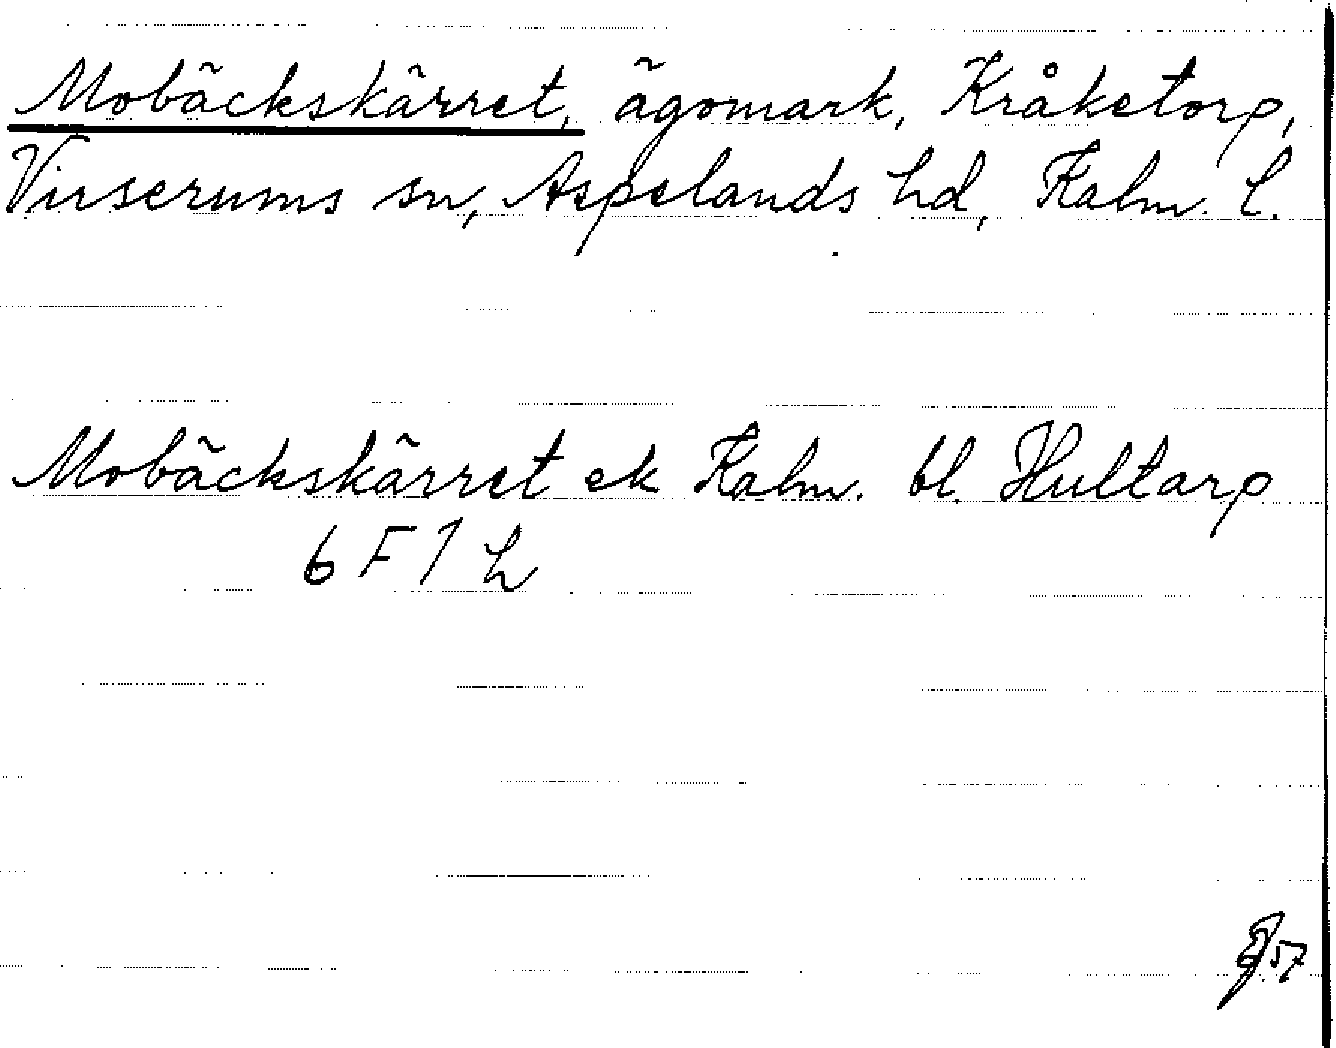 Mobäckskärret, ägomark, Kråketorp,
Virserums sn, Aspelands hd, Kalm. l.
Mobäckskärret ek Kalm. bl. Hultarp
6 F 1 h
57